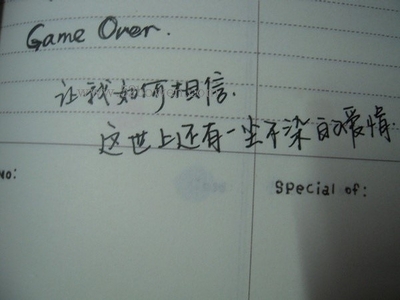 Game Over.
让我如何相信.
这世上还有一尘不染的爱情.
NO:
Special of: